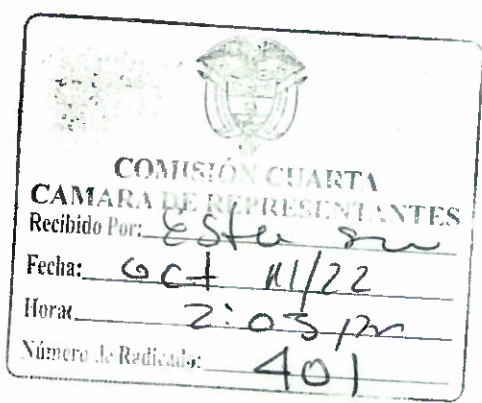 COMISIÓN CUARTA
CAMARA DE REPRESENTANTES
Recibido Por:
Fecha: Oct 11/22
Hora: 2:05 pm
Número de Radicado: 401